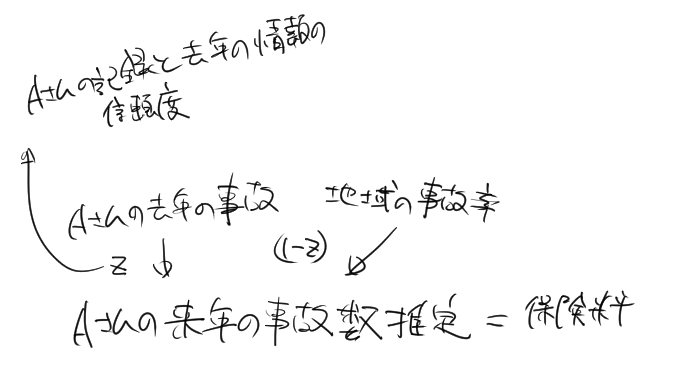 Aさんの記録と去年の情報の
信頼度
Aさんの去年の事故 地域の事故率
z (1-z)
Aさんの来年の事故数推定 = 保険料